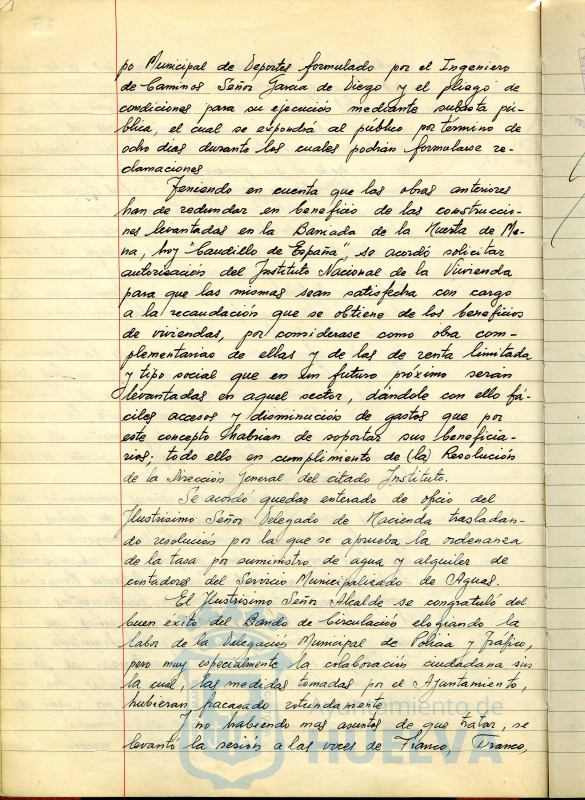 po Municipal de Deportes formulado por el Ingeniero
de Caminos Señor Garcia de Diego y el pliego de
condiciones para su ejecución mediante subasta pú-
blica, el cual se expondrá al público por término de
ocho dias durante los cuales podrán formularse re-
clamaciones
Teniendo en cuenta que las obras anteriores
han de redundar en beneficio de las construccio-
nes levantadas en la Barriada de la Huerta de Me-
na, hoy "Caudillo de España", se acordó solicitar
autorización del Instituto Nacional de la Vivienda
para que las mismas sean satisfecha con cargo
a la recaudación que se obtiene de los beneficios
de viviendas, por considerase como oba com-
plementarias de ellas y de las de renta limitada
y tipo social que en un futuro próximo serán
levantadas en aquel sector, dándole con ello fá-
ciles accesos y disminución de gastos que por
este concepto habrian de soportar sus beneficia-
rios; todo ello en cumplimiento de (la) Resolución
de la Dirección General del citado Instituto.
Se acordó quedar enterado de oficio del
Ilustrisimo Señor Delegado de Hacienda trasladan-
do resolución por la que se aprueba la ordenanza
de la tasa por suministro de agua y alquiler de
contadores del Servicio Municipalizado de Aguas.
El Ilustrisimo Señor Alcalde se congratuló del
buen éxito del Bando de Circulación elogiando la
labor de la Delegación Municipal de Policia y Tráfico,
pero muy especialmente la colaboración ciudadana sin
la cual, las medidas tomadas por el Ajuntamiento,
hubieran fracasado rotundamente
Y no habiendo mas asuntos de que tratar, se
levantó la sesión a las voces de Franco, Franco,
Ayuntamiento de
HUELVA